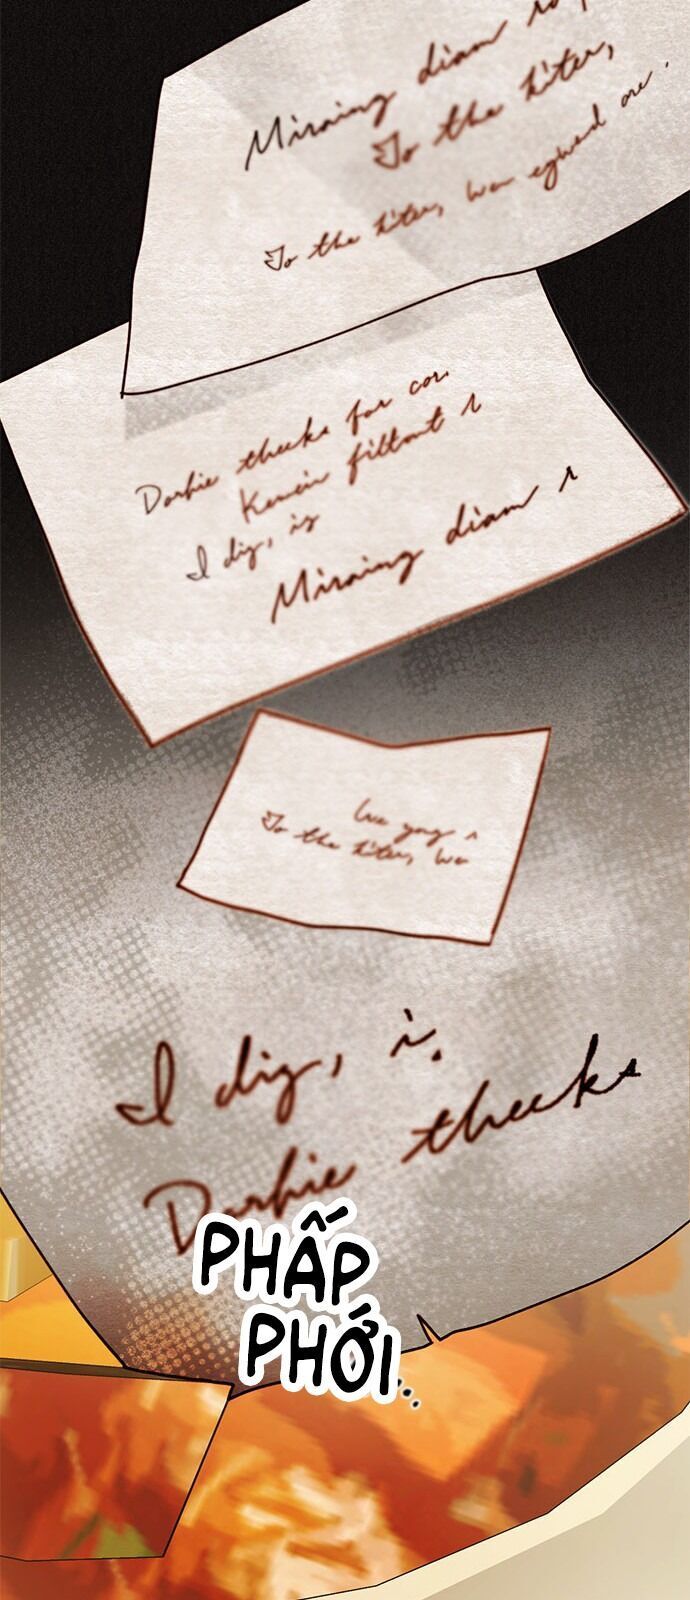 Miraing diam
To the hiter,
To the hiter, we egward ore.
Dorhie theeks for cor.
Kewein filtont s
I dig, is
Miraing diam s
We gong
To the hiter, We
I dig, i.
Dorhie theeks
PHẤP
PHỚI...